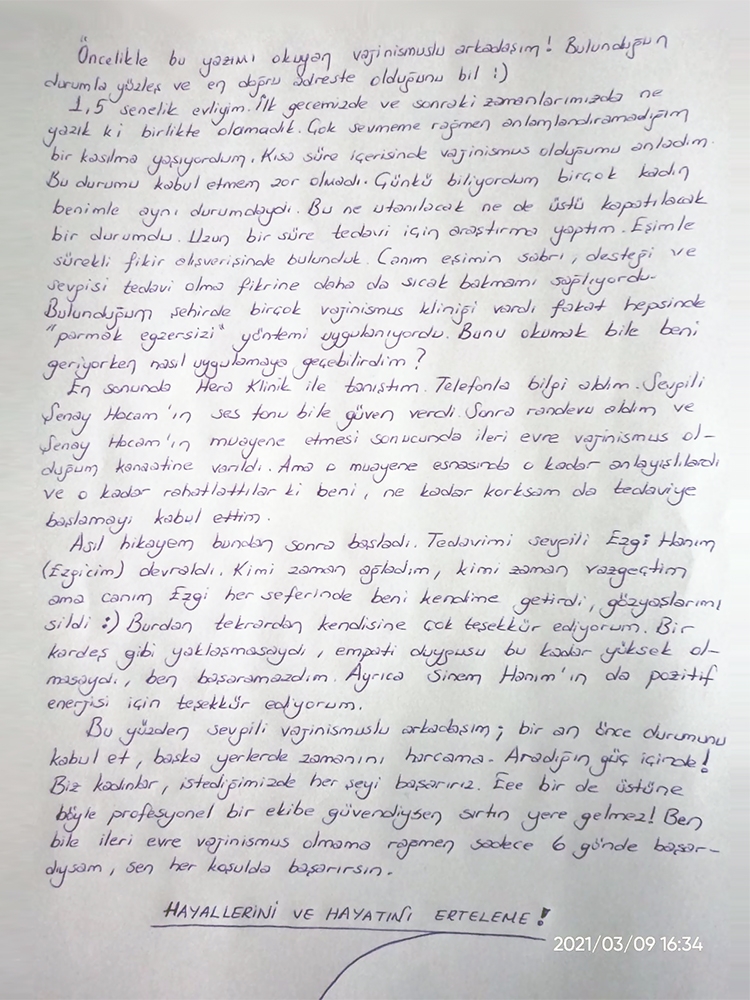 Öncelikle bu yazımı okuyan vajinismuslu arkadaşım! Bulunduğun
durumla yüzleş ve en doğru adreste olduğunu bil :)
1,5 senelik evliyim. İlk gecemizde ve sonraki zamanlarımızda ne
yazık ki birlikte olamadık. Çok sevmeme rağmen anlamlandıramadığım
bir kasılma yaşıyordum. Kısa süre içerisinde vajinismus olduğumu anladım.
Bu durumu kabul etmem zor olmadı. Çünkü biliyordum birçok kadın
benimle aynı durumdaydı. Bu ne utanılacak ne de üstü kapatılacak
bir durumdu. Uzun bir süre tedavi için araştırma yaptım. Eşimle
sürekli fikir alışverişinde bulunduk. Canım eşimin sabrı, desteği ve
sevgisi tedavi olma fikrine daha da sıcak bakmamı sağlıyordu.
Bulunduğum şehirde birçok vajinismus kliniği vardı fakat hepsinde
"parmak egzersizi" yöntemi uygulanıyordu. Bunu okumak bile beni
geriyorken nasıl uygulamaya geçebilirdim?
En sonunda Hera Klinik ile tanıştım. Telefonla bilgi aldım. Sevgili
Şenay Hocam'ın ses tonu bile güven verdi. Sonra randevu aldım ve
Şenay Hocam'ın muayene etmesi sonucunda ileri evre vajinismus ol-
duğum kanaatine varıldı. Ama o muayene esnasında o kadar anlayışlılardı
ve o kadar rahatlattılar ki beni, ne kadar korksam da tedaviye
başlamayı kabul ettim.
Asıl hikayem bundan sonra başladı. Tedavimi sevgili Ezgi Hanım
(Ezgicim) devraldı. Kimi zaman ağladım, kimi zaman vazgeçtim
ama canım Ezgi her seferinde beni kendime getirdi, gözyaşlarımı
sildi :) Burdan tekrardan kendisine çok teşekkür ediyorum. Bir
kardeş gibi yaklaşmasaydı, empati duygusu bu kadar yüksek ol-
masaydı, ben başaramazdım. Ayrıca Sinem Hanım'ın da pozitif
enerjisi için teşekkür ediyorum.
Bu yüzden sevgili vajinismuslu arkadaşım; bir an önce durumunu
kabul et, başka yerlerde zamanını harcama. Aradığın güç içinde!
Biz kadınlar, istediğimizde her şeyi başarırız. Eee bir de üstüne
böyle profesyonel bir ekibe güvendiysen sırtın yere gelmez! Ben
bile ileri evre vajinismus olmama rağmen sadece 6 günde başar-
dıysam, sen her koşulda başarırsın.
HAYALLERİNİ VE HAYATINI ERTELEME!
2021/03/09 16:34